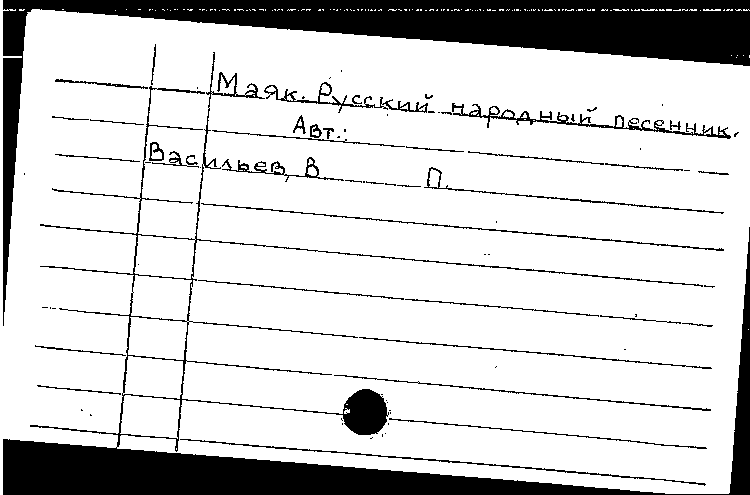 Маяк. Русский народный песенник.
Авт.:
Васильев, В П.